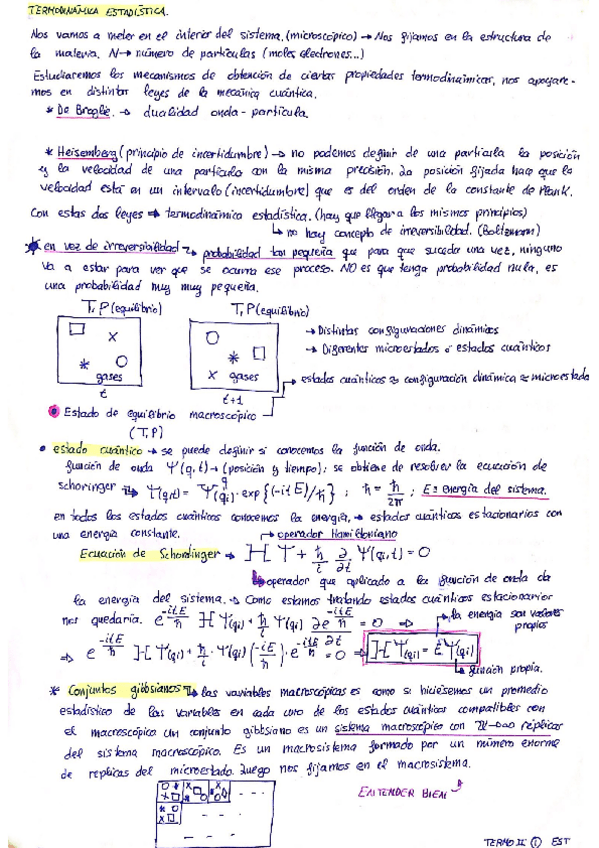 TERMODINÁMICA ESTADÍSTICA.
Nos vamos a meter en el interior del sistema. (microscópico) → Nos fijamos en la estructura de
la materia. N → número de partículas (moles electrones...)
Estudiaremos los mecanismos de obtención de ciertas propiedades termodinámicas, nos apoyare-
mos en distintas leyes de la mecánica cuántica.
* De Broglie. → dualidad onda-partícula.
* Heisemberg (principio de incertidumbre) → no podemos definir de una partícula la posición
y la velocidad de una partícula con la misma precisión. La posición fijada hace que la
velocidad está en un intervalo (incertidumbre) que es del orden de la constante de Plank.
Con estas dos leyes → termodinámica estadística. (hay que llegar a los mismos principios)
↳ no hay concepto de irreversibilidad. (Boltzmann)
* en vez de irreversibilidad → probabilidad tan pequeña que para que suceda una vez, ninguno
va a estar para ver que se ocurra ese proceso. NO es que tenga probabilidad nula, es
una probabilidad muy muy pequeña.
T, P (equilibrio) T, P (equilibrio)
→ Distintas configuraciones dinámicas
→ Diferentes microestados o estados cuánticos
gases gases
→ estados cuánticos ≈ configuración dinámica ≈ microestado
t t+1
Estado de equilibrio macroscópico
(T, P)
• estado cuántico → se puede definir si conocemos la función de onda.
función de onda Ψ(q,t) → (posición y tiempo); se obtiene de resolver la ecuación de
schoringer → Ψ(q,t) = Ψ(qi) · exp{(-itE)/ħ} ; ħ = h/2π ; E = energía del sistema.
en todos los estados cuánticos conocemos la energía, → estados cuánticos estacionarios con
una energía constante.
→ operador Hamiltoniano
Ecuación de Schordinger → H Ψ + ħ/i ∂/∂t Ψ(qi,t) = 0
↳ operador que aplicado a la función de onda da
la energía del sistema. → Como estamos tratando estados cuánticos estacionarios
nos quedaría. e^(-itE/ħ) H Ψ(qi) + ħ/i Ψ(qi) ∂e^(-itE/ħ)/∂t = 0 ⇒
→ la energía son valores
propios
⇒ e^(-itE/ħ) H Ψ(qi) + ħ/i · Ψ(qi) (-iE/ħ) · e^(-itE/ħ) = 0 → H Ψ(qi) = E Ψ(qi)
↳ función propia.
* Conjuntos gibbsianos → las variables macroscópicas es como si hiciésemos un promedio
estadístico de las variables en cada uno de los estados cuánticos compatibles con
el macroscópico un conjunto gibbsiano es un sistema macroscópico con N→∞ réplicas
del sistema macroscópico. Es un macrosistema formado por un número enorme
de replicas del microestado. Luego nos fijamos en el macrosistema.
ENTENDER BIEN
TERMO II ① EST